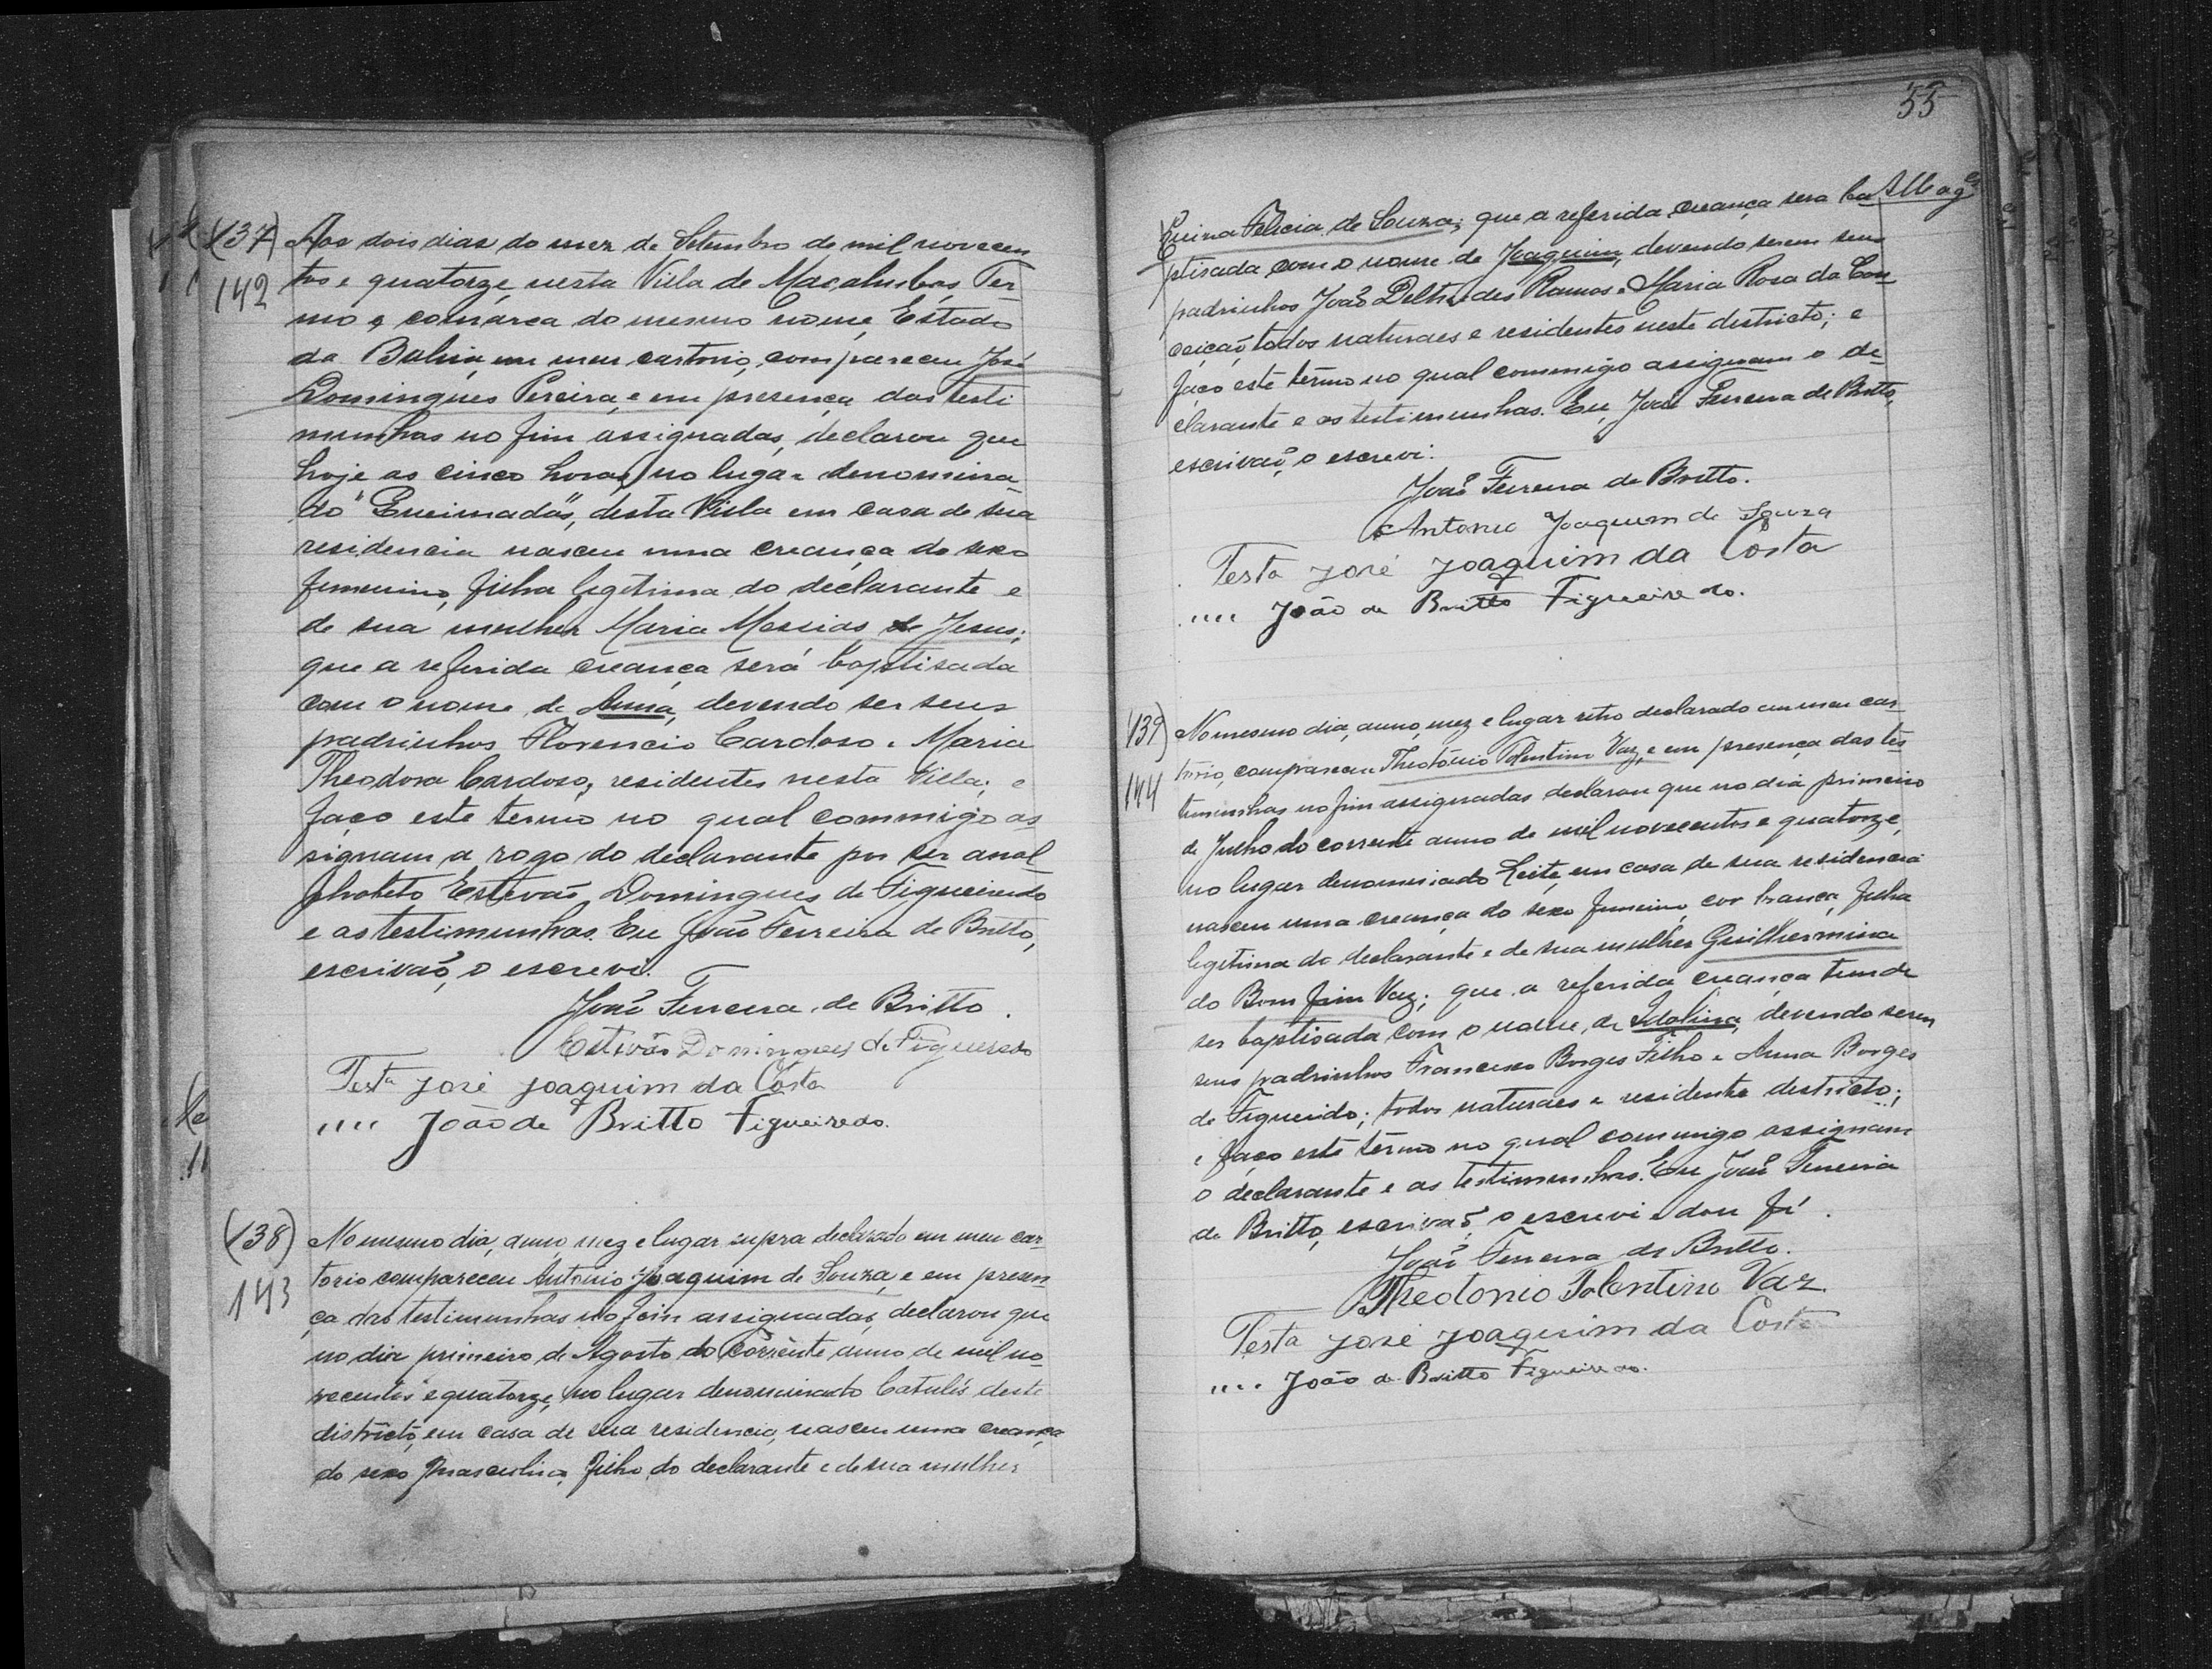 (137) Aos dois dias do mez de Setembro de mil novecen
142 tos e quatorze, nesta Villa de Macahubas, Ter-
mo e comarca do mesmo nome, Estado
da Bahia, em meu cartorio, compareceu José
Domingues Pereira, e em presença das testi
munhas no fim assignadas, declarou que
hoje as cinco horas, no lugar denomina
do "Queimadas", desta Villa em casa de sua
residencia nasceu uma creança do sexo
femenino, filha legitima do declarante e
de sua mulher Maria Messias de Jesus;
que a referida creança será baptisada
com o nome de Anna, devendo ser seus
padrinhos Florencio Cardoso e Maria
Theodora Cardoso, residentes nesta Villa; e
faço este termo no qual commigo as
signam a rogo do declarante por ser anal
phabeto Estevão Domingues de Figueiredo
e as testimunhas. Eu João Ferreira de Britto,
escrivaõ, o escrevi.
João Ferreira de Britto.
Estivão Domingues de Figueredo
Testa José Joaquim da Costa
,,,, João de Britto Figueiredo.
(138) No mesmo dia, anno, mez e lugar supra declarado em meu car-
143 torio compareceu Antonio Joaquim de Souza, e em presen
ça das testimunhas no fim assignadas, declarou que
no dia primeiro de Agosto do corrente anno de mil no-
vecentos e quatorze, no lugar denominado Catulés deste
districto, em casa de sua residencia, nasceu uma creança
do sexo masculino, filho do declarante e de sua mulher
55
Felicia de Souza; que a referida creança sera ba
ptisada com o nome de Joaquim, devendo serem seus
padrinhos João Ramos e Maria Rosa da Con
ceição, todos naturaes e residentes neste districto; e
faço este termo no qual commigo assignam o de
clarante e as testimunhas. Eu, João Ferreira de Britto,
escrivaõ, o escrevi.
João Ferreira de Britto.
Antonio Joaquim de Souza
Testa José Joaquim da Costa
,,,, João de Britto Figueiredo.
139) No mesmo dia, anno, mez e lugar retro declarado em meu car-
torio, compareceu Theotonio Tolentino Vaz, e em presença das tes
144 timunhas no fim assignadas declarou que no dia primeiro
de Julho do corrente anno de mil novecentos e quatorze,
no lugar denominado Leite, em casa de sua residencia
nasceu uma creança do sexo femenino, cor branca, filha
legitima do declarante e de sua mulher Guilhermina
do Bom fim Vaz; que a referida creança tem de
ser baptisada com o nome de Idalina, devendo serem
seus padrinhos Francisco Borges Filho e Anna Borges
de Figueirido; todos naturaes e residente districto;
e faço este termo no qual commigo assignam
o declarante e as testimunhas. Eu João Ferreira
de Britto, escrivaõ, o escrevi e dou fé.
João Ferreira de Britto.
Theotonio Tolentino Vaz
Testa José Joaquim da Costa
,,,, João de Britto Figueiredo.